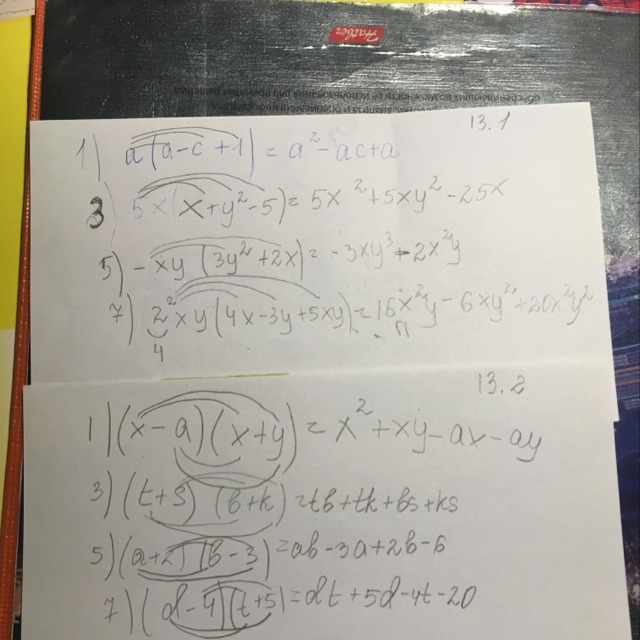 Hatber
13.1
1) a(a-c+1) = a² - ac + a
3) 5x(x+y²-5) = 5x² + 5xy² - 25x
5) -xy(3y²+2x) = -3xy³ - 2x²y
7) 2²xy(4x-3y+5xy) = 16x²y - 6xy² + 20x²y²
4
13.2
1) (x-a)(x+y) = x² + xy - ax - ay
3) (t+s)(b+k) = tb + tk + bs + ks
5) (a+2)(b-3) = ab - 3a + 2b - 6
7) (d-4)(t+5) = dt + 5d - 4t - 20